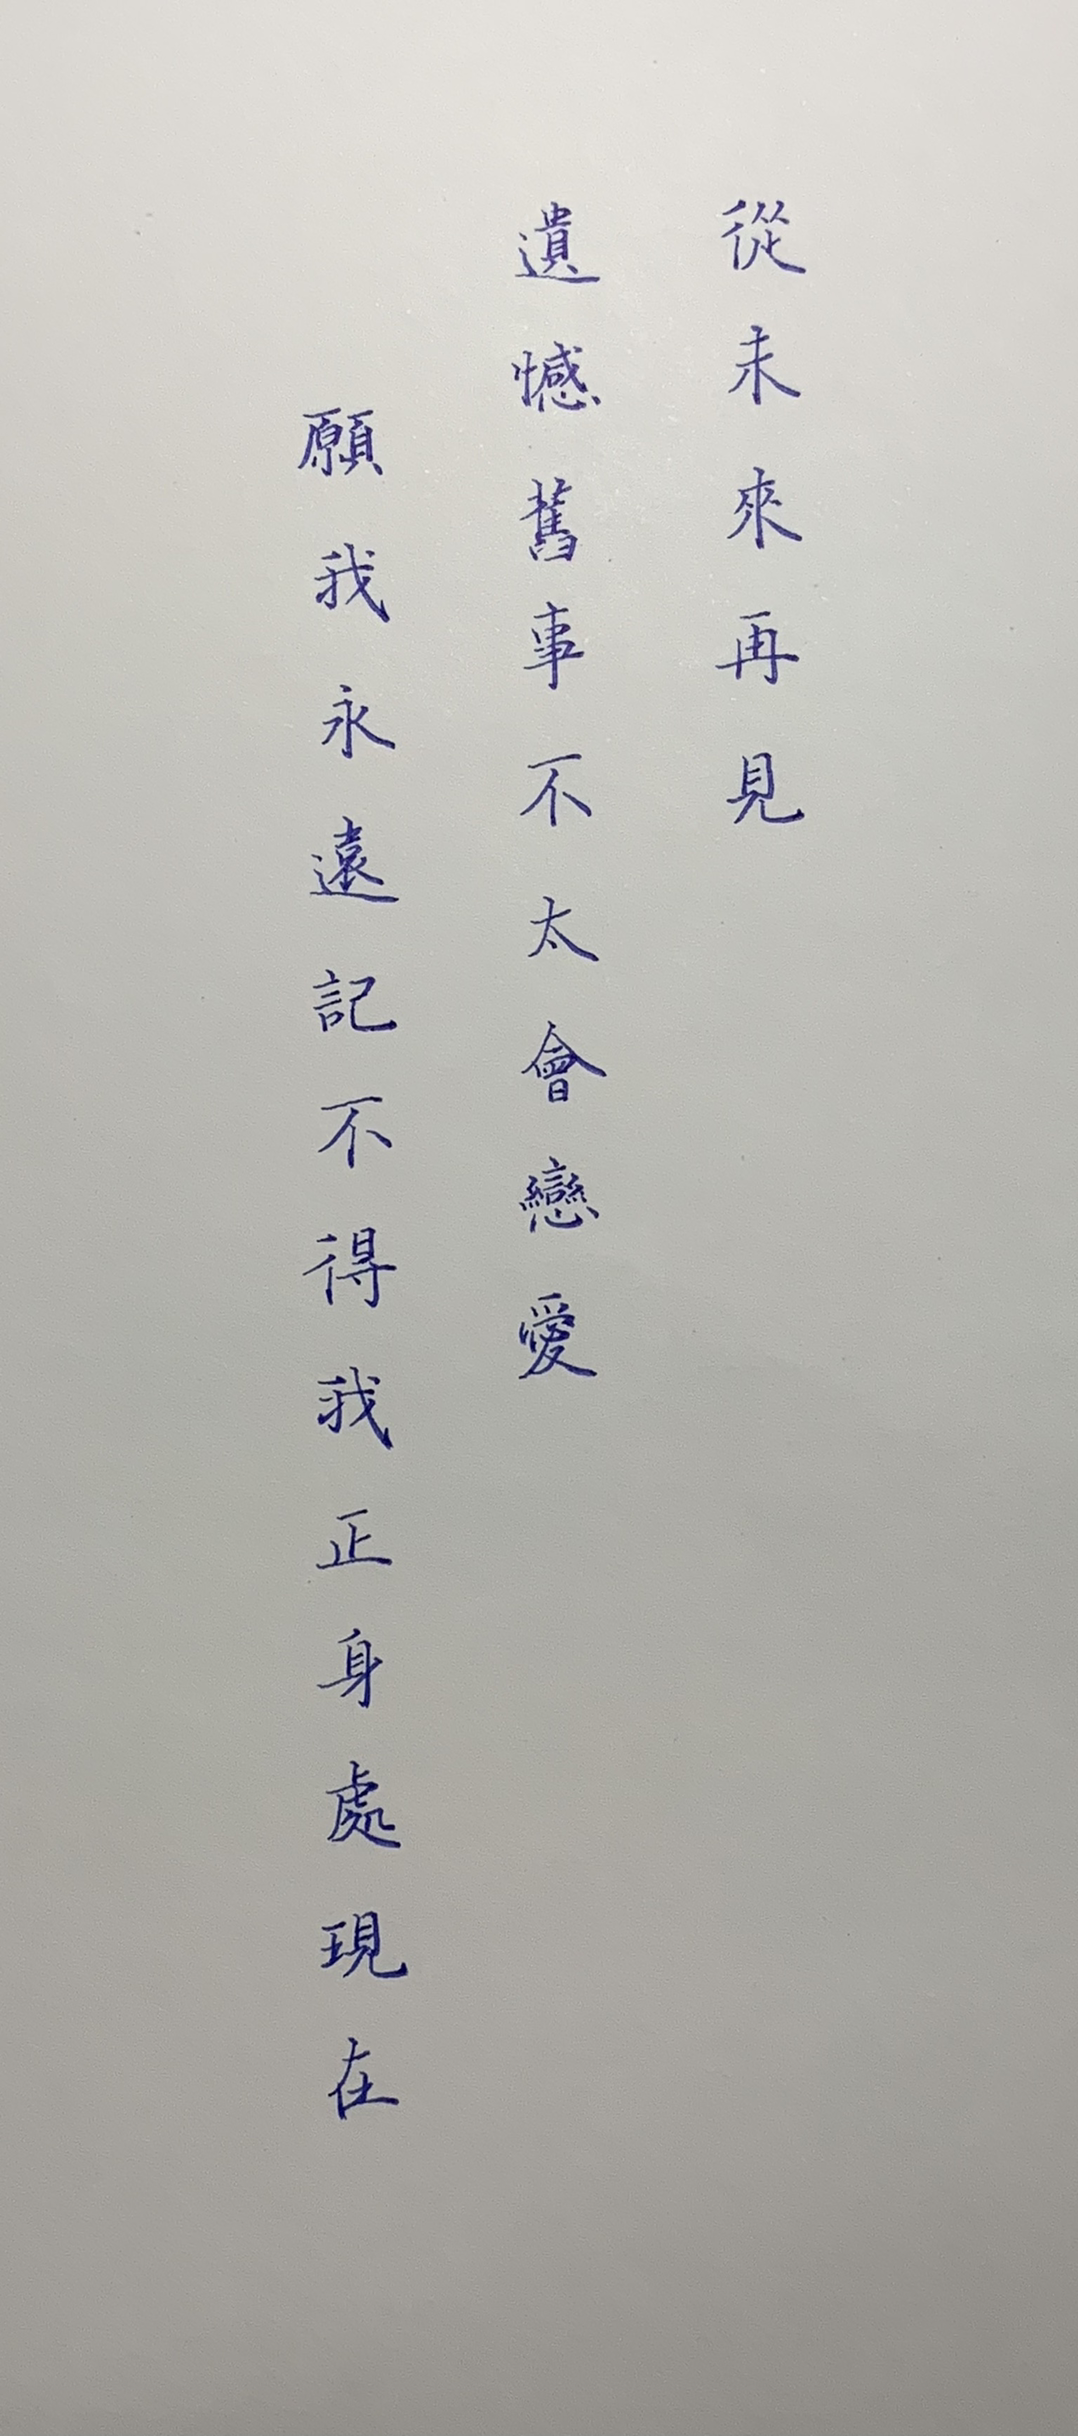 從未來再見
遺憾舊事不太會戀愛
願我永遠記不得我正身處現在